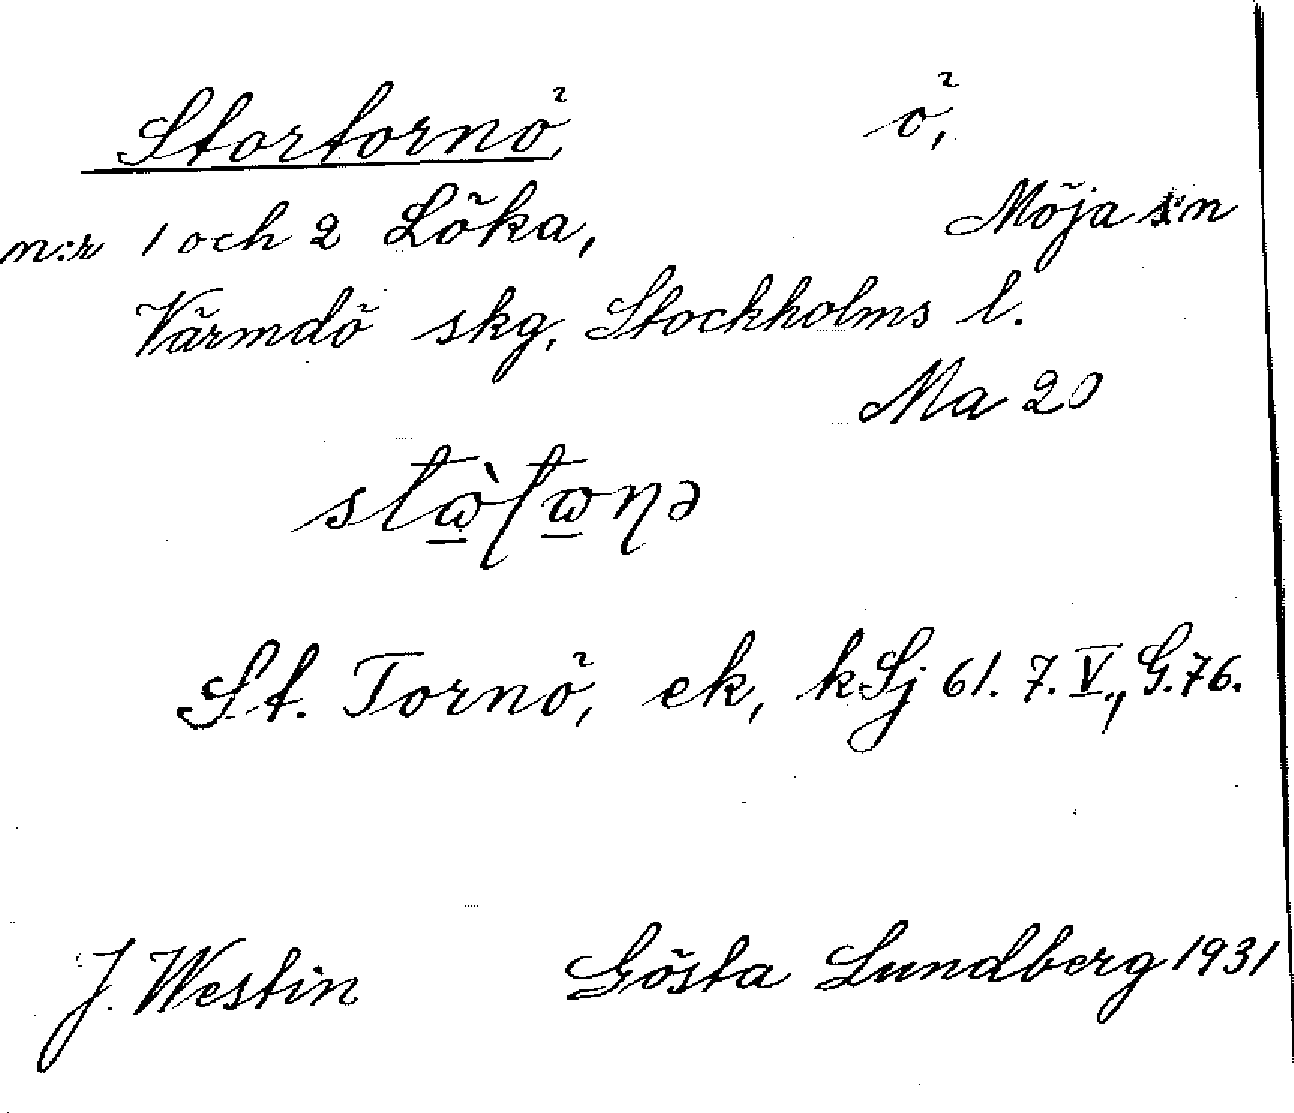 Stortornö, ö,
n:r 1 och 2 Löka, Möja s:n
Värmdö skg, Stockholms l.
Ma 20
St. Tornö, ek, kSj 61. 7. V., G.76.
J. Westin Gösta Lundberg 1931